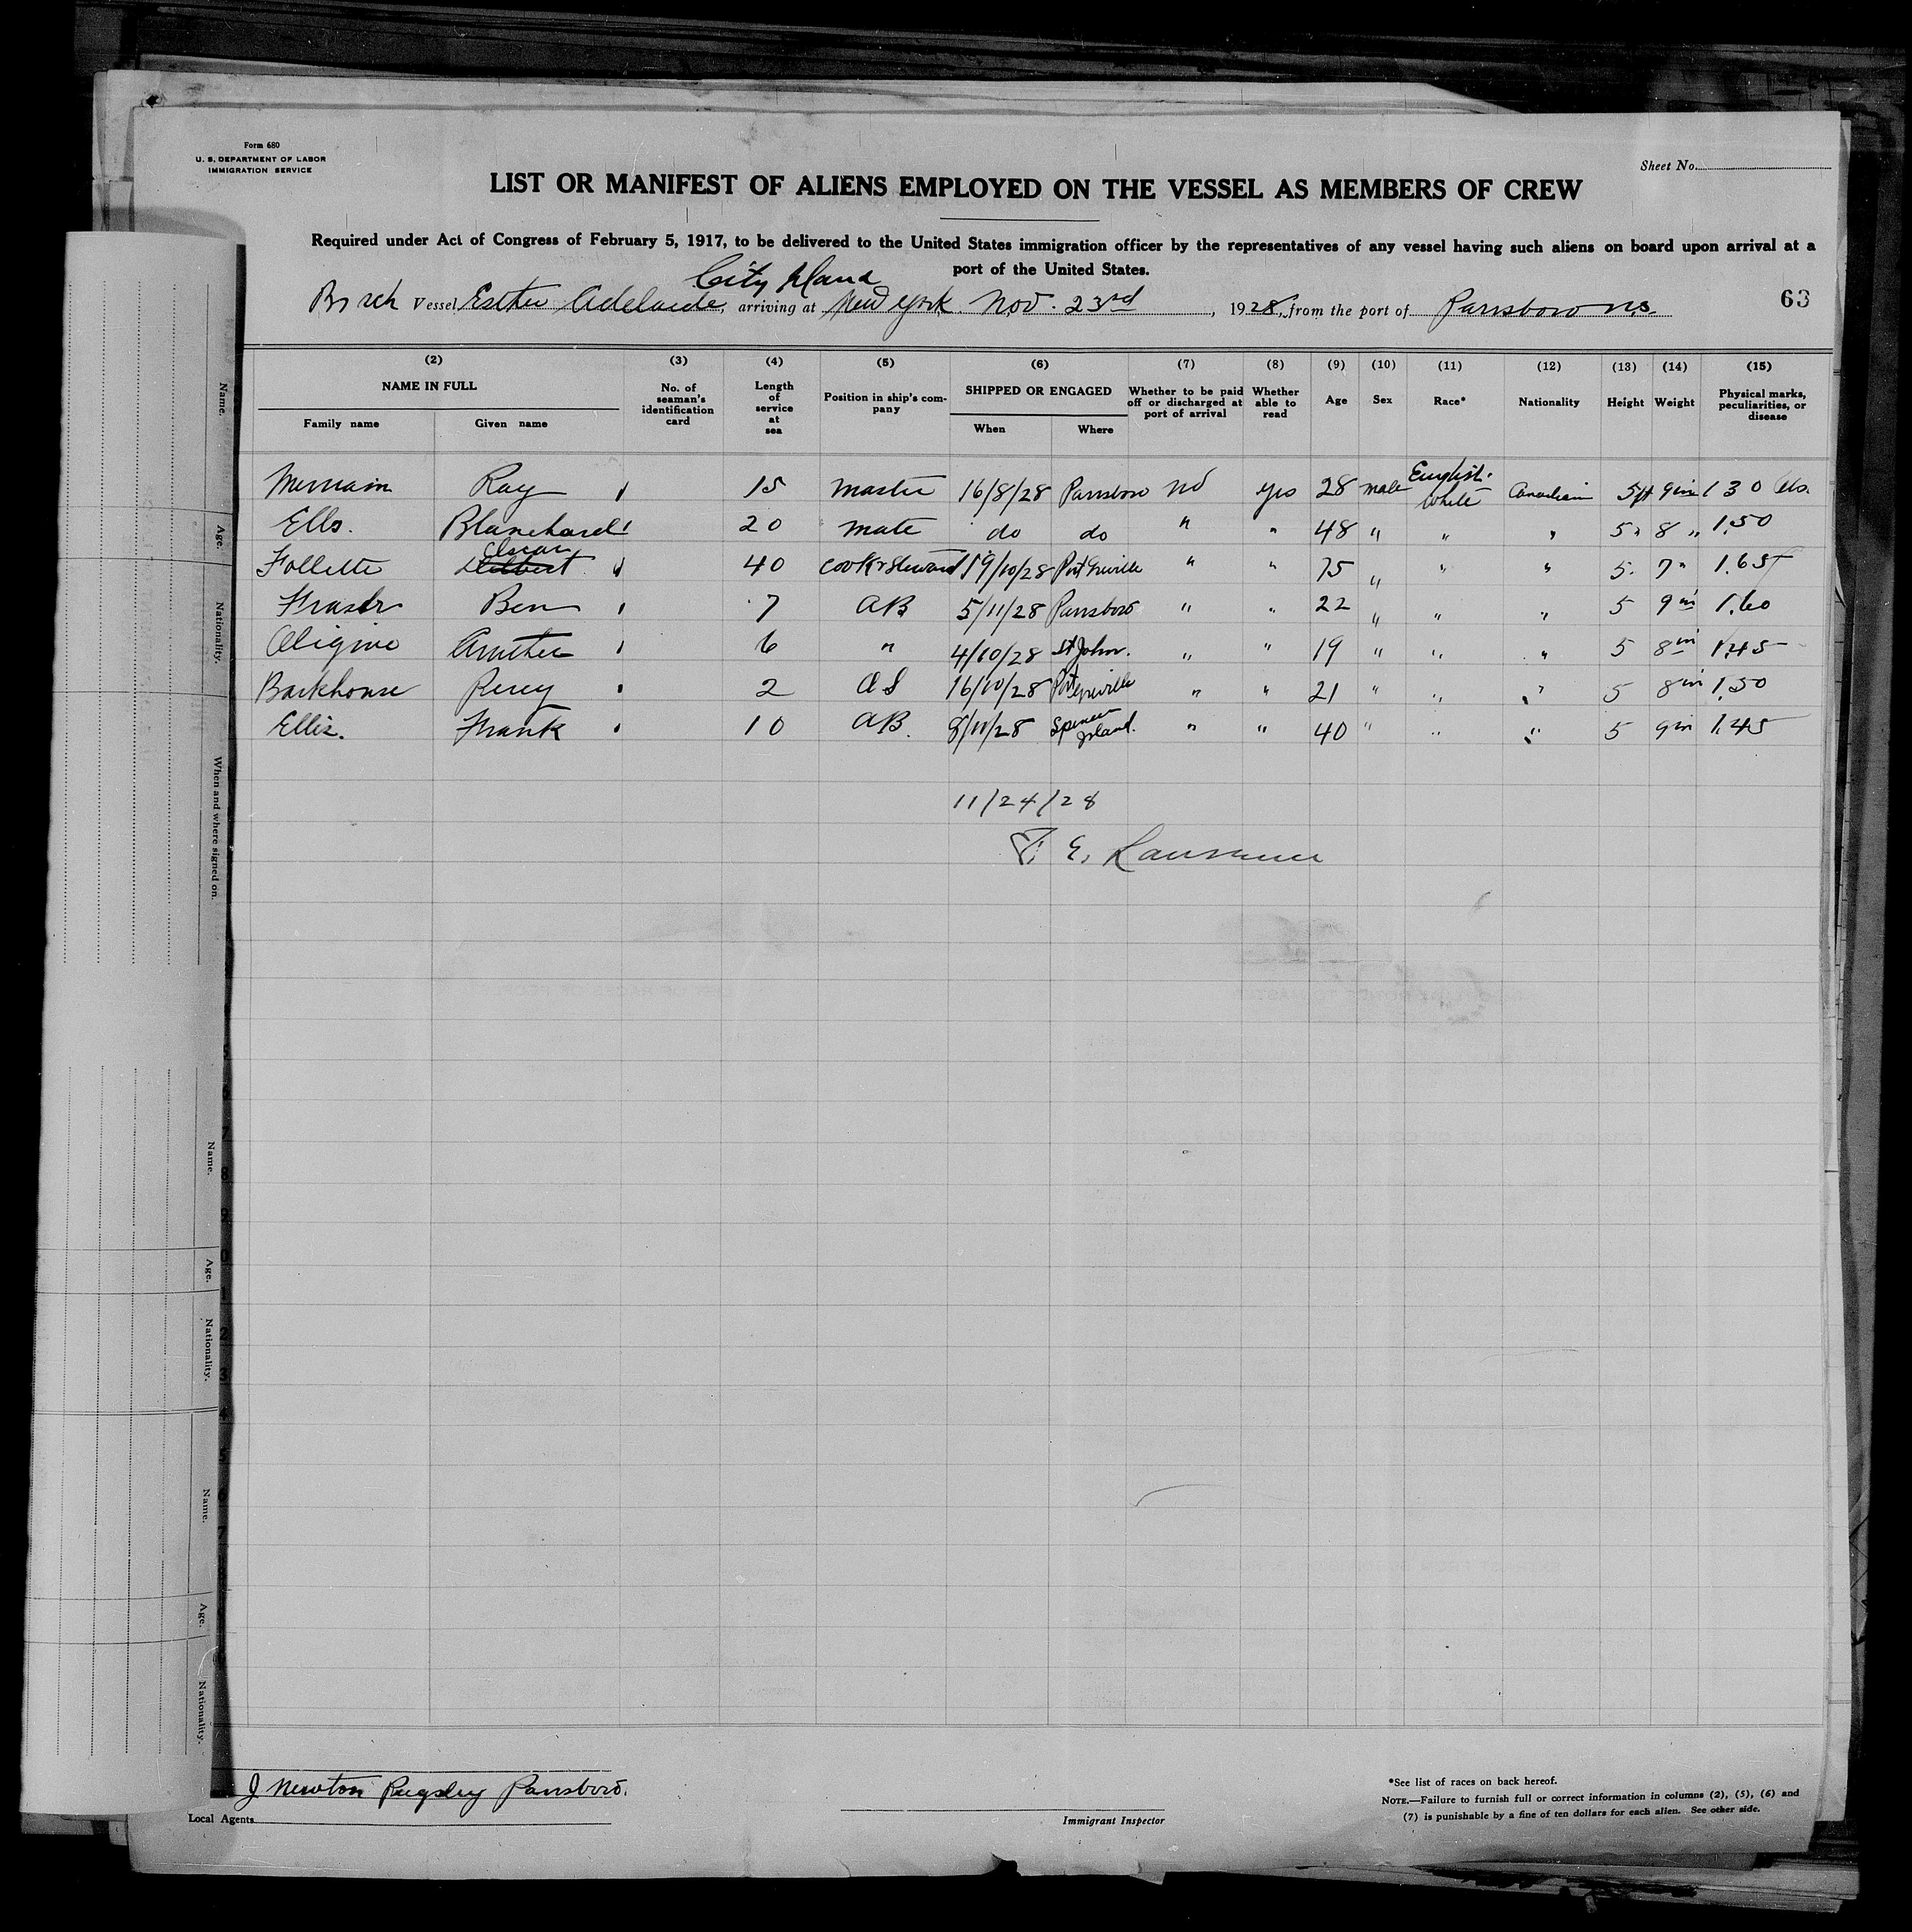 Form 680
U. S. DEPARTMENT OF LABOR
IMMIGRATION SERVICE
Sheet No.
LIST OR MANIFEST OF ALIENS EMPLOYED ON THE VESSEL AS MEMBERS OF CREW
Required under Act of Congress of February 5, 1917, to be delivered to the United States immigration officer by the representatives of any vessel having such aliens on board upon arrival at a
port of the United States.
City Island
Br sch Vessel Esther Adelaide, arriving at New York. Nov. 23rd, 1928, from the port of Parrsboro N.S. 63
(2) (3) (4) (5) (6) (7) (8) (9) (10) (11) (12) (13) (14) (15)
NAME IN FULL No. of seaman's identification card Length of service at sea Position in ship's company SHIPPED OR ENGAGED Whether to be paid off or discharged at port of arrival Whether able to read Age Sex Race* Nationality Height Weight Physical marks, peculiarities, or disease
Family name Given name When Where
Merriam Ray 15 Master 16/8/28 Parrsboro no yes 28 male English White Canadian 5ft 9in 130 lbs.
Ells. Blanchard 20 mate do do " " 48 " " " 5 " 8 " 1.50
Follette Oscar 40 Cook & Steward 19/10/28 Port Greville " " 75 " " " 5. 7 " 1.65
Fraser Ben 7 AB 5/11/28 Parrsboro " " 22 " " " 5 9in 1.60
6 " 4/10/28 St John. " " 19 " " " 5 8in 1.45
Barkhouse Percy 2 OS 16/10/28 Port Greville " " 21 " " " 5 8in 1.50
Ellis. Frank 10 AB. 8/11/28 Spencer Island. " " 40 " " " 5 9in 1.45
11/24/28
J Newton Pugsley Parrsboro.
Local Agents
Immigrant Inspector
*See list of races on back hereof.
NOTE.—Failure to furnish full or correct information in columns (2), (5), (6) and
(7) is punishable by a fine of ten dollars for each alien. See other side.
Name.
Age.
Nationality.
When and where signed on.
Name.
Age.
Nationality.
Name.
Age.
Nationality.